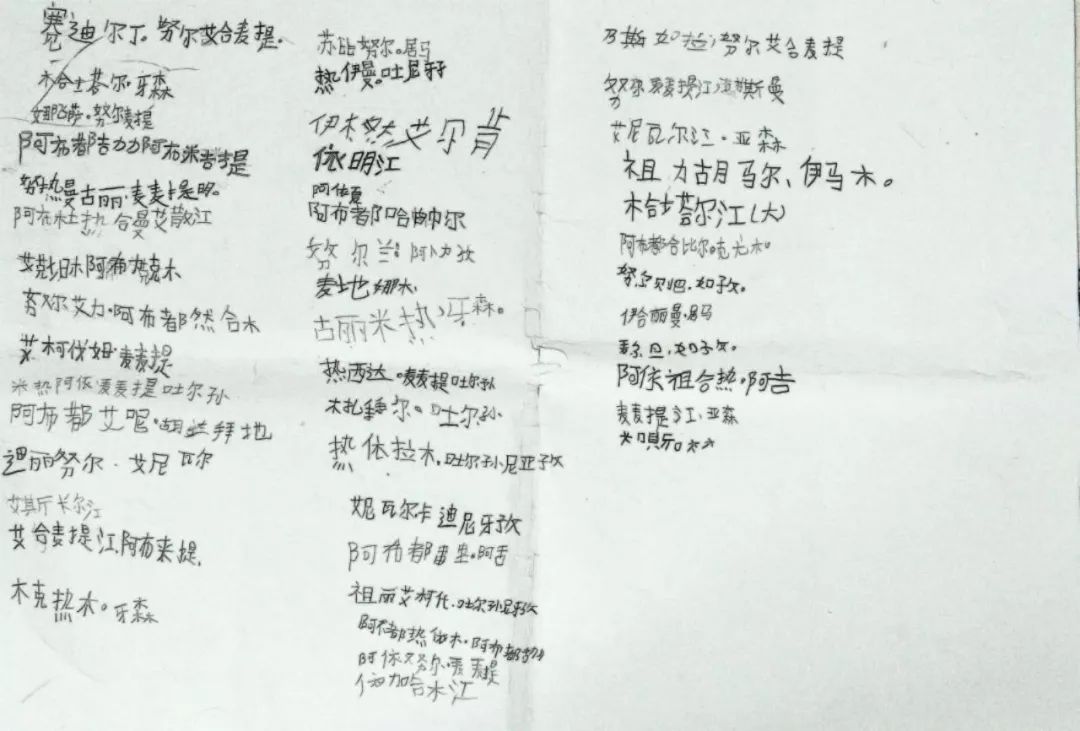 赛迪尔丁。努尔艾合麦提.
木合士塔尔·牙森
娜菲萨·努尔麦提
阿布都吉力力阿布米吉提
努热曼古丽·麦麦提明。
阿布杜热合曼艾散江
艾克坦木阿布力克木
努尔艾力·阿布都然合木
艾柯代姆·麦麦提
米热阿依麦麦提吐尔孙
阿布都艾呢·胡达拜地
迪丽努尔·艾尼瓦尔
艾斯卡尔江
艾合麦提江,阿布来提,
木克热木。牙森
苏比努尔。居马
热伊曼。吐尼牙孜
伊木然艾尔肯
依明江
阿依夏
阿布都哈帕尔
努尔兰。阿卜力孜
麦地娜木.
古丽米热,牙森。
热西达·麦麦提吐尔孙
木扎帕尔。吐尔孙
热依拉木.吐尔孙尼亚孜
艾尼瓦尔卡迪尼牙孜
阿布都·阿吉
祖丽艾柯代.吐尔孙尼牙孜
阿布都热依木·阿布都
阿依努尔·麦麦提
加哈木江
乃斯如拉,努尔艾合麦提
努尔麦麦提江,斯曼
艾尼瓦尔江·亚森
祖力胡马尔、伊马木。
木合士塔尔江(大)
阿布都合比尔·克尤木。
努尔贝里.如孜。
伊合丽曼·居马
如孜。
阿依祖合热·阿吉
麦麦提江·亚森